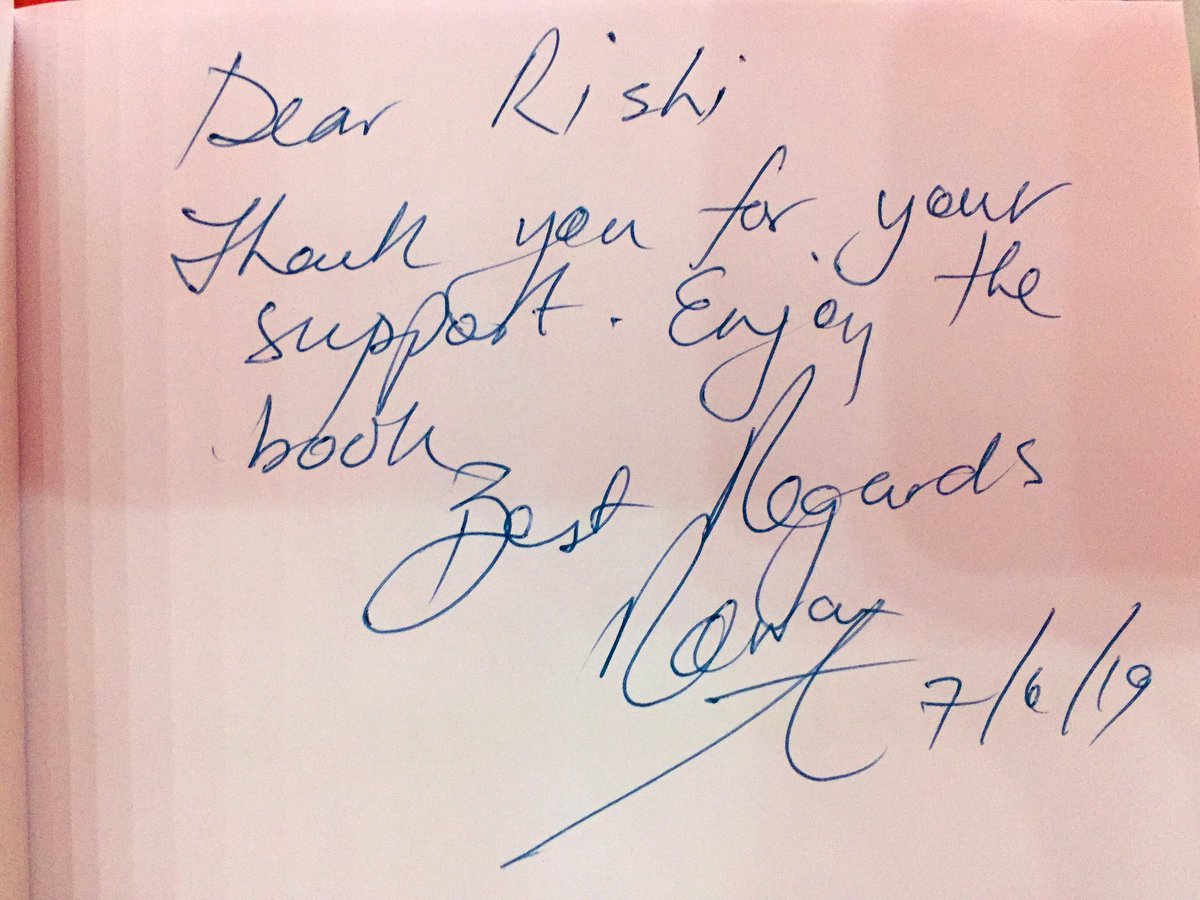 Dear Rishi
Thank you for your
support. Enjoy the
book
Best Regards
7/6/19